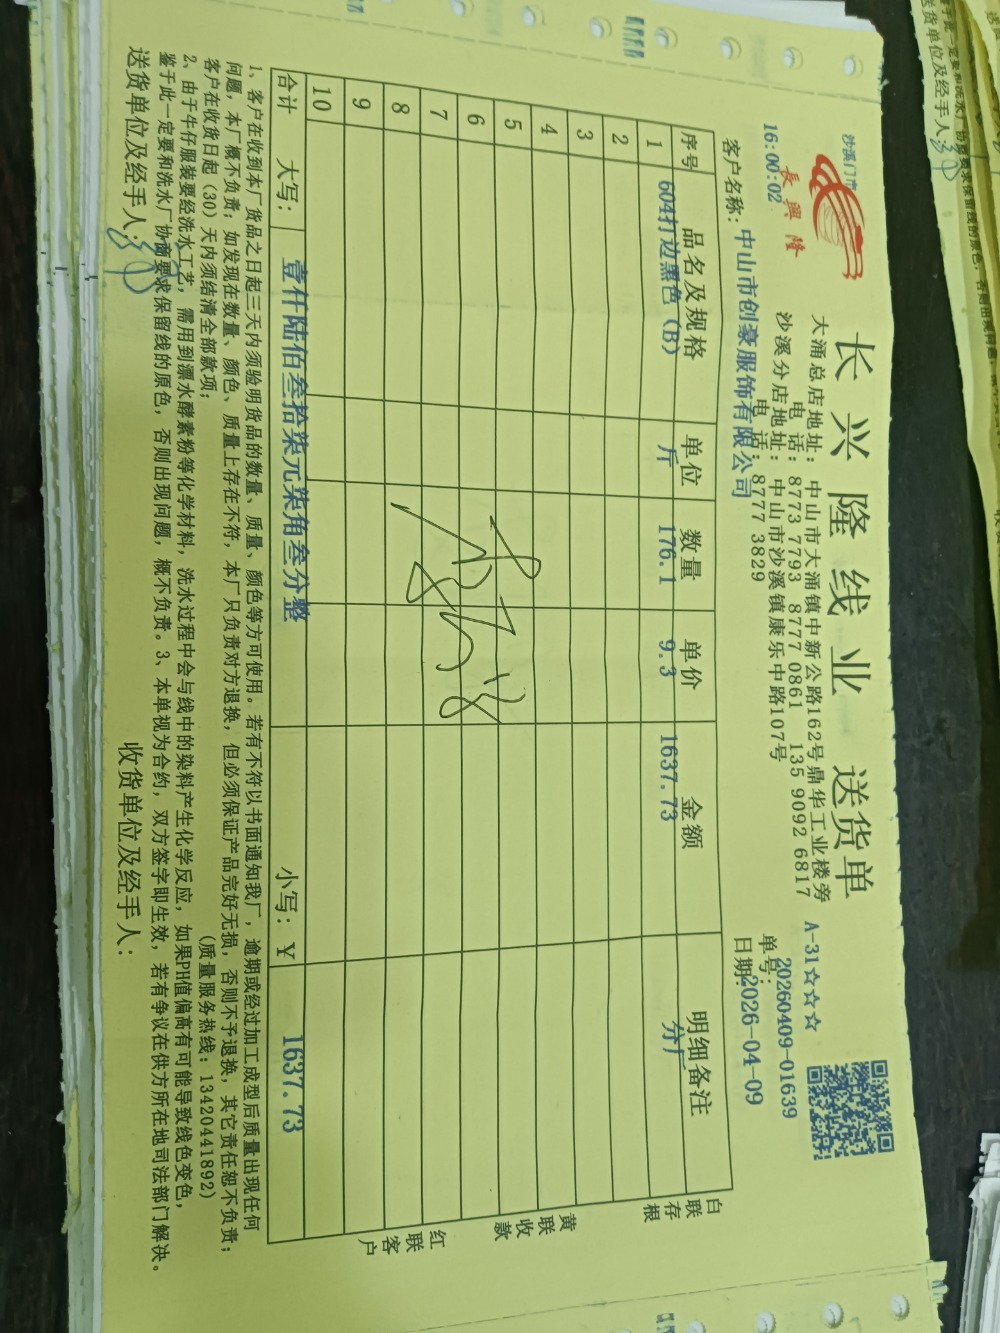 沙溪门市
長興隆
16:00:02
长兴隆线业 送货单
大涌总店地址：中山市大涌镇中新公路162号鼎华工业楼旁
电话：8773 7793 8777 0861 135 9092 6817
沙溪分店地址：中山市沙溪镇康乐中路107号
电话：8777 3829
A-31☆☆☆
单号：20260409-01639
日期：2026-04-09
客户名称：中山市创豪服饰有限公司
序号 品名及规格 单位 数量 单价 金额 明细备注
1 604打边黑色（B） 斤 176.1 9.3 1637.73 分厂
2
3
4
5
6
7
8
9
10
合计 大写：壹仟陆佰叁拾柒元柒角叁分整 小写：￥ 1637.73
白联存根
黄联收款
红联客户
1、客户在收到本厂货品之日起三天内须验明货品的数量、质量、颜色等方可使用。若有不符以书面通知我厂，逾期或经过加工成型后质量出现任何
问题，本厂概不负责；如发现在数量、颜色、质量上存在不符，本厂只负责对方退换，但必须保证产品完好无损，否则不予退换，其它责任恕不负责；
客户在收货日起（30）天内须结清全部款项； （质量服务热线：13420441892）
2、由于牛仔服装要经洗水工艺，需用到漂水酵素粉等化学材料，洗水过程中会与线中的染料产生化学反应，如果PH值偏高有可能导致线色变色，
鉴于此一定要和洗水厂协商要求保留线的原色，否则出现问题，概不负责。3、本单视为合约，双方签字即生效，若有争议在供方所在地司法部门解决。
送货单位及经手人： 收货单位及经手人：
送货单位及经手人